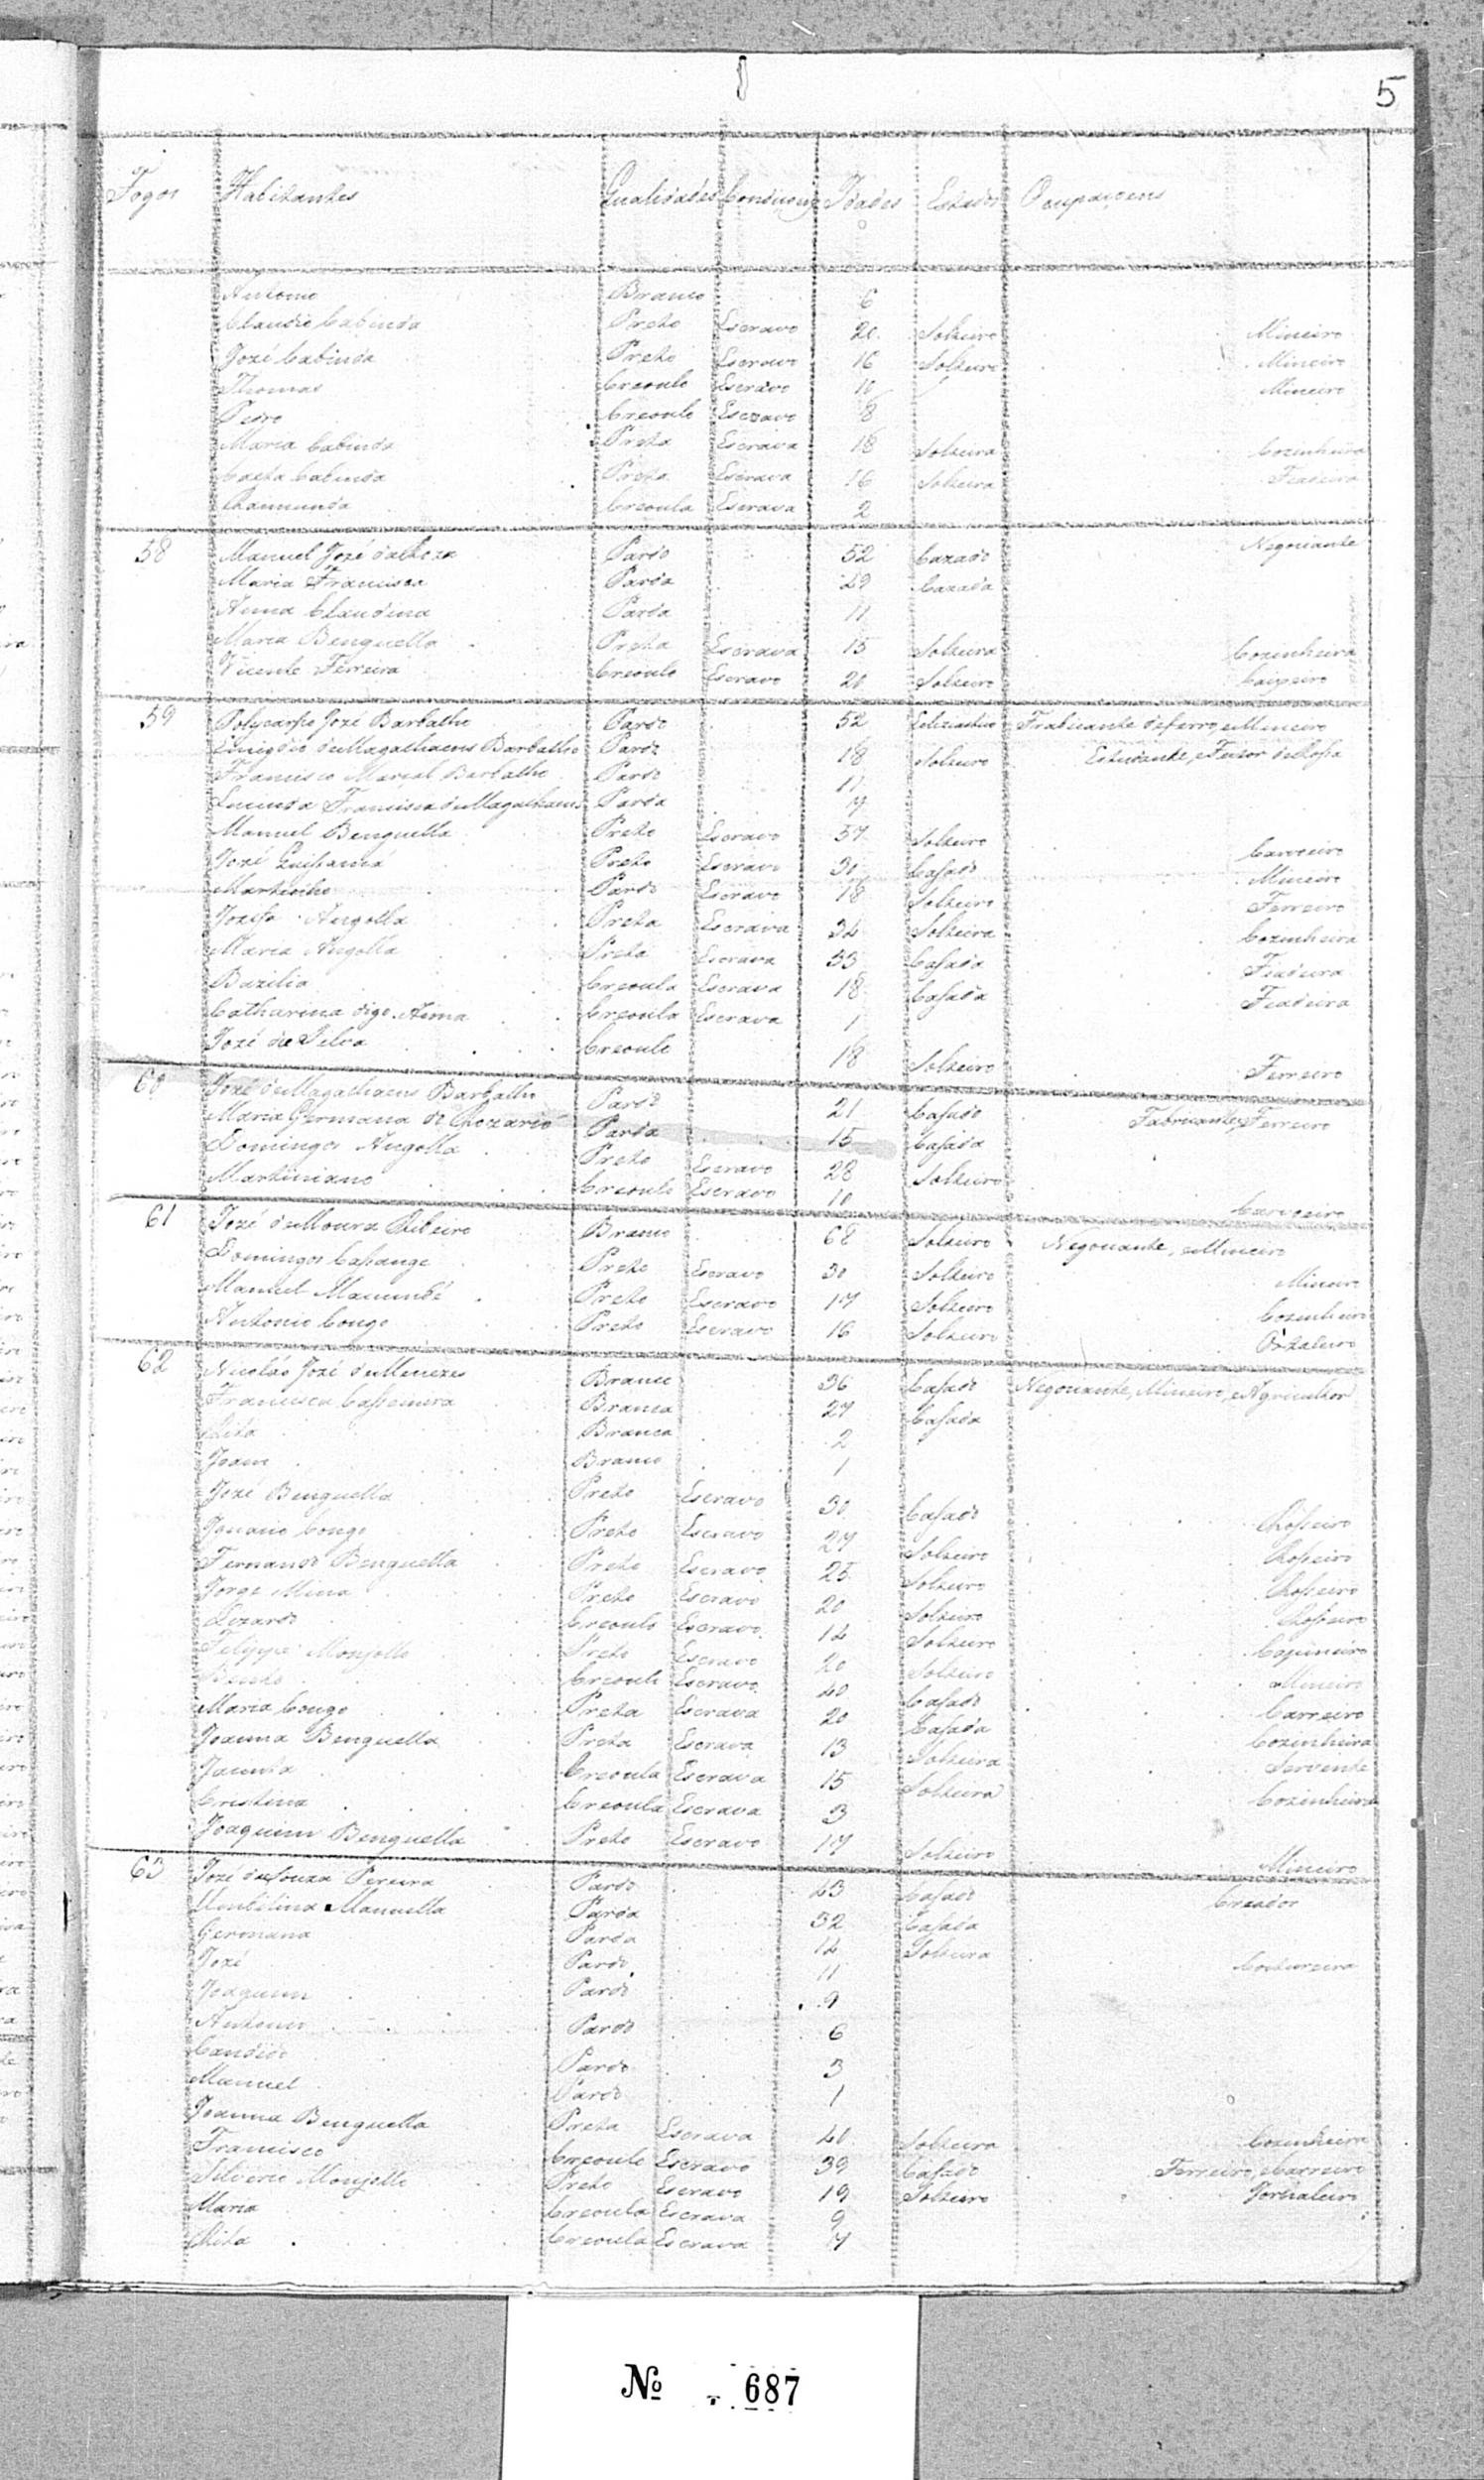 5
Fogos Habitantes Qualidades Condiçoens Idades Estados Ocupaçoens
Antonio Branco 6
Claudio Cabinda Preto Escravo 20 Solteiro Mineiro
Jozé Cabinda Preto Escravo 16 Solteiro Mineiro
Thomas Creoulo Escravo 10 Mineiro
Pedro Creoulo Escravo 8
Maria Cabinda Preta Escrava 18 Solteira Cozinheira
Cabinda Preta Escrava 16 Solteira Fiadeira
Raimunda Creoula Escrava 2
58 Manuel Jozé Pardo 52 Cazado Negociante
Maria Francisca Parda 29 Cazada
Anna Claudina Parda 11
Maria Benguella Preta Escrava 15 Solteira Cozinheira
Vicente Ferreira Creoulo Escravo 20 Solteiro
59 Polycarpo Jozé Barbalho Pardo 52 Fabricante de ferro, e Mineiro
de Magalhaens Barbalho Pardo 18 Solteiro Estudante, e Feitor
Francisco Marçal Barbalho Pardo 11
Lucinda Francisca de Magalhaens Parda 7
Manuel Benguella Preto Escravo 57 Solteiro Carvoeiro
Jozé Preto Escravo 30 Casado Mineiro
Martinho Pardo Escravo 18 Solteiro Ferreiro
Jozefa Angolla Preta Escrava 34 Solteira Cozinheira
Maria Angolla Preta Escrava 33 Casada Fiadeira
Bazilia Creoula Escrava 18 Casada Fiadeira
Catharina digo Anna Creoula Escrava 1
Jozé da Silva Creoulo 18 Solteiro Ferreiro
60 Jozé de Magalhaens Barbalho Pardo 21 Casado Fabricante, Ferreiro
Maria Germana do Rozario Parda 15 Casada
Domingos Angolla Preto Escravo 28 Solteiro
Martiniano Creoulo Escravo 10 Carvoeiro
61 Jozé de Moura Ribeiro Branco 68 Solteiro Negociante, e Mineiro
Domingos Cassange Preto Escravo 30 Solteiro Mineiro
Manuel Preto Escravo 17 Solteiro Cozinheiro
Antonio Congo Preto Escravo 16 Solteiro
62 Nicoláo Jozé de Menezes Branco 36 Casado Negociante, Mineiro, e Agricultor
Francisca Cassemira Branca 27 Casada
Rita Branca 2
Joam Branco 1
Jozé Benguella Preto Escravo 30 Casado Rosseiro
Ignacio Congo Preto Escravo 27 Solteiro Rosseiro
Fernando Benguella Preto Escravo 25 Solteiro Rosseiro
Jorge Mina Preto Escravo 20 Solteiro Rosseiro
Lizardo Creoulo Escravo 14 Solteiro
Felippe Monjollo Preto Escravo 20 Solteiro Mineiro
Creoulo Escravo 40 Casado Carreiro
Maria Congo Preta Escrava 20 Casada Cozinheira
Joanna Benguella Preta Escrava 13 Solteira Servente
Jacinta Creoula Escrava 15 Solteira Cozinheira
Cristina Creoula Escrava 3
Joaquim Benguella Preto Escravo 17 Solteiro Mineiro
63 Jozé de Souza Pereira Pardo 43 Casado Creador
Umbilina Manuella Parda 32 Casada
Germana Parda 14 Solteira Costureira
Jozé Pardo 11
Joaquim Pardo 9
Antonio Pardo 6
Candido Pardo 3
Manuel Pardo 1
Joanna Benguella Preta Escrava 40 Solteira Cozinheira
Francisco Creoulo Escravo 39 Casado Ferreiro, e Carreiro
Silverio Monjollo Preto Escravo 19 Solteiro Jornaleiro
Maria Creoula Escrava 9
Rita Creoula Escrava 7
№ 687